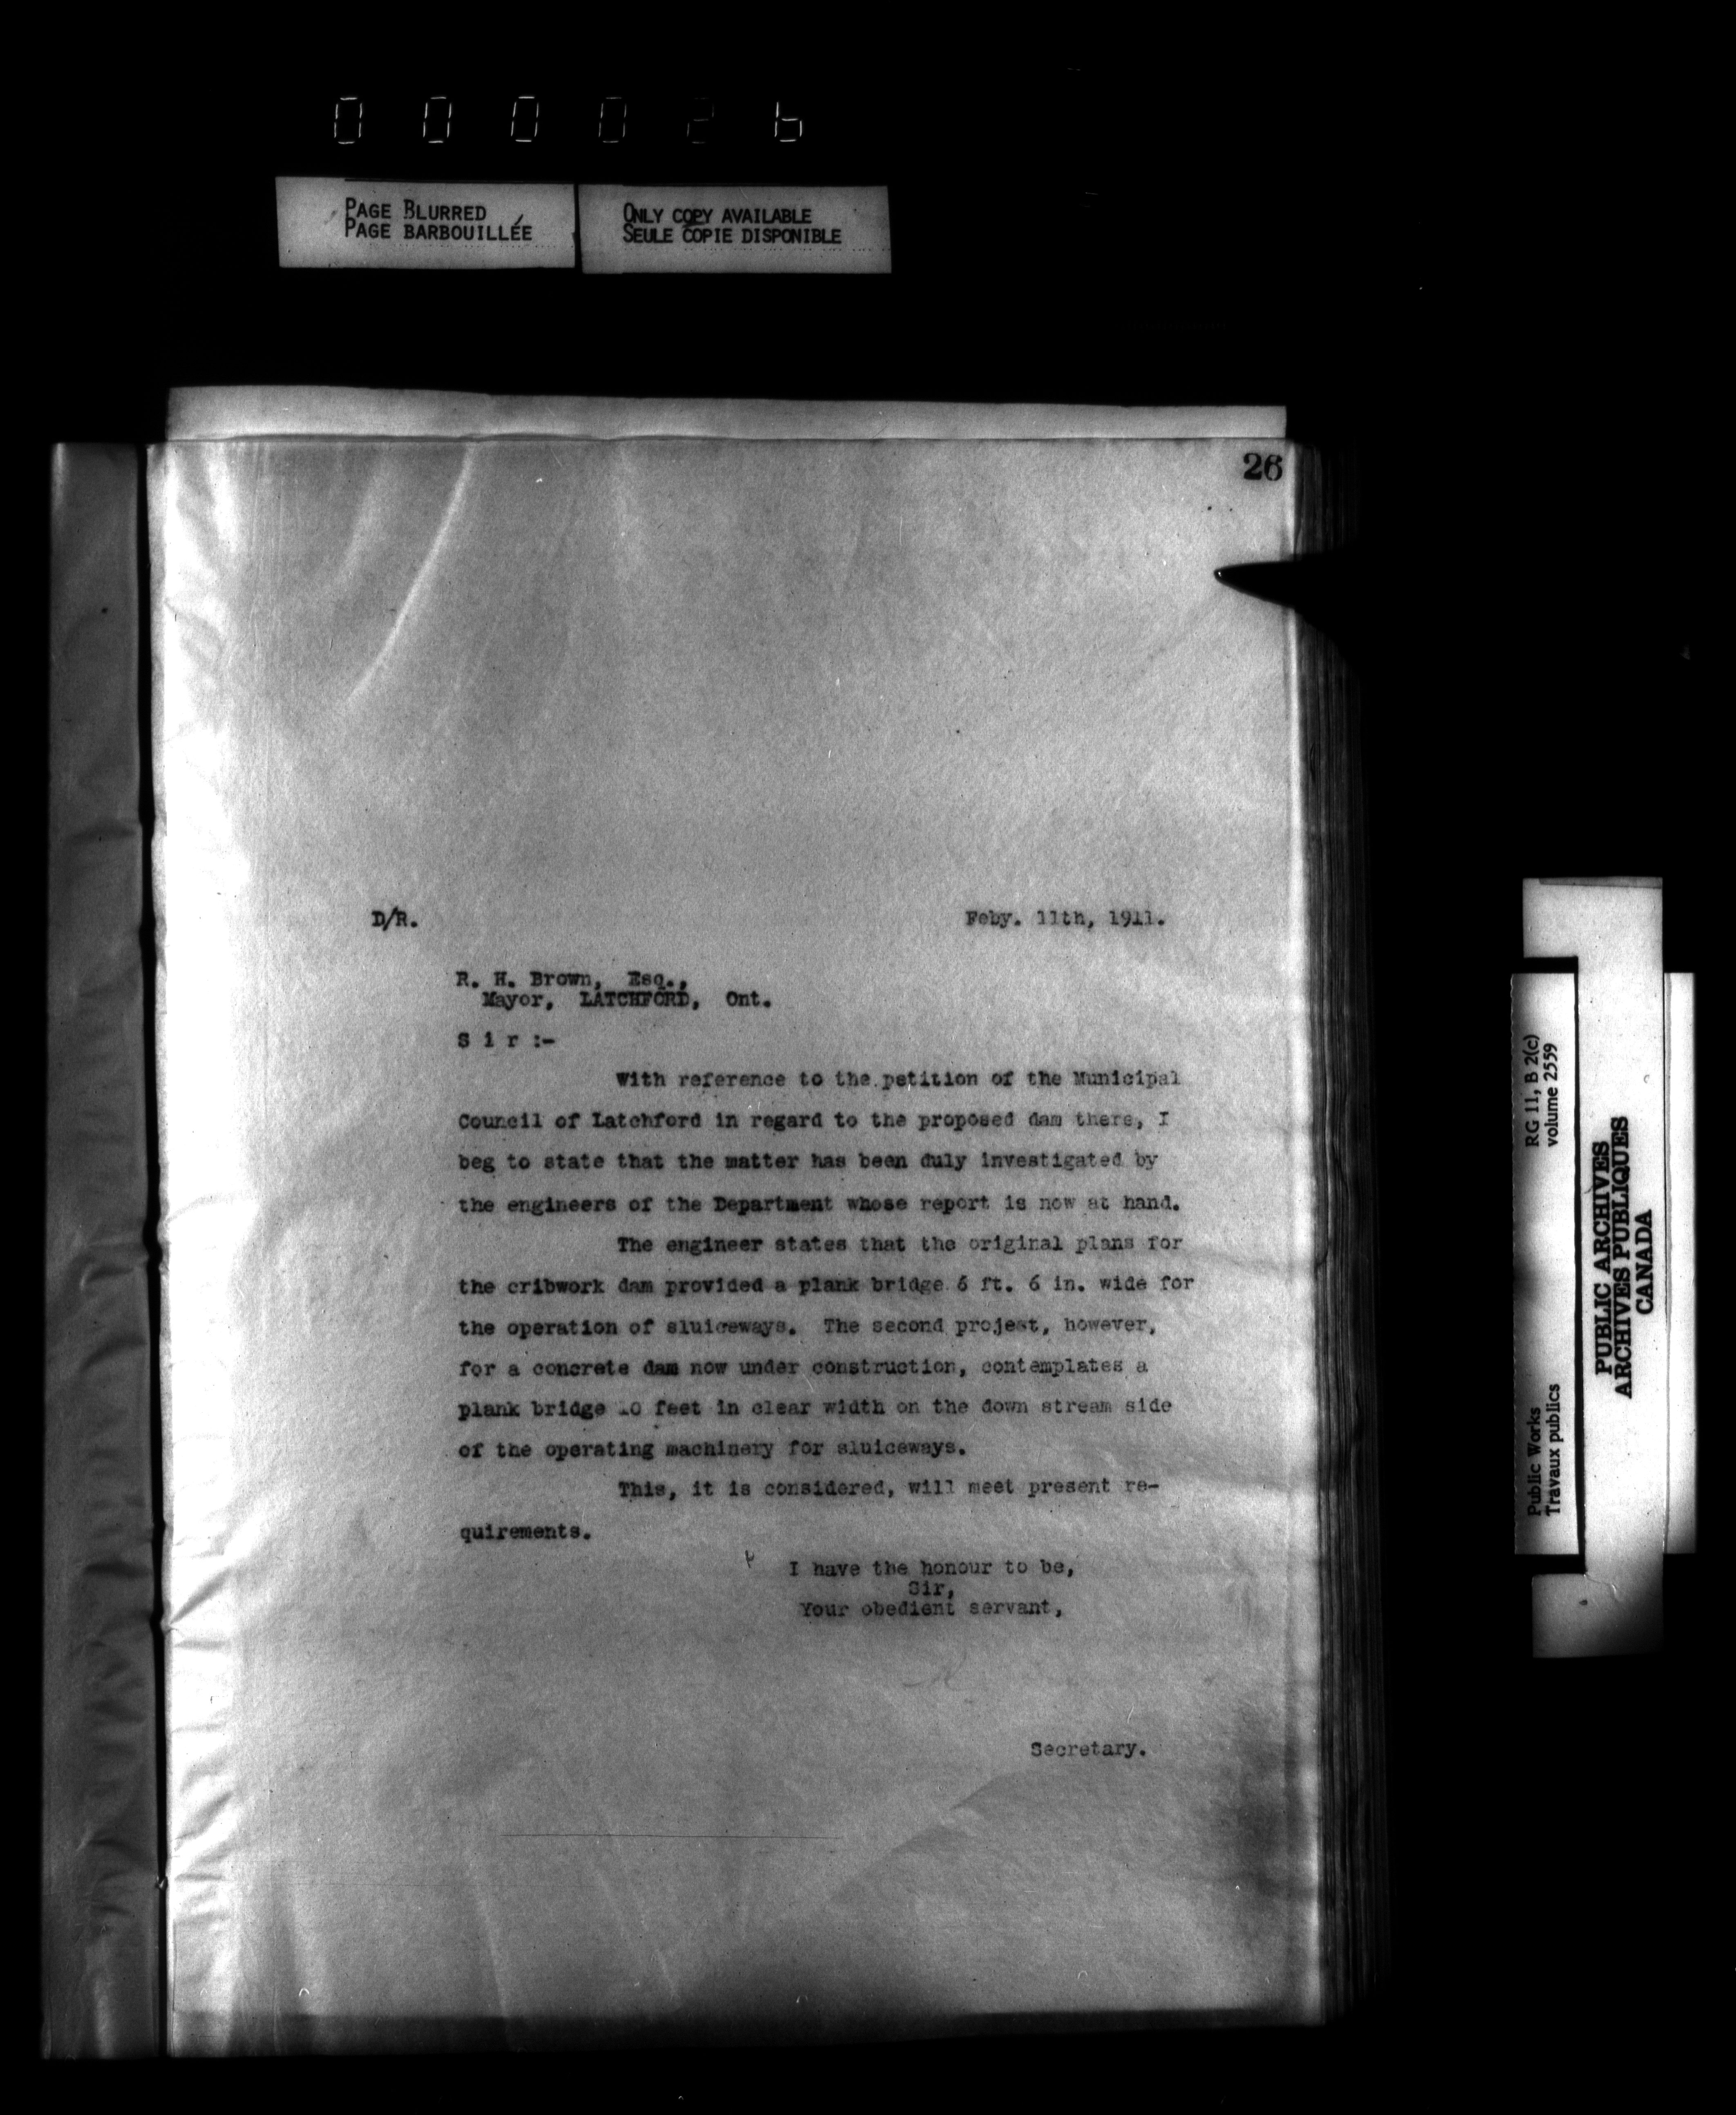 000026
PAGE BLURRED
PAGE BARBOUILLÉE
ONLY COPY AVAILABLE
SEULE COPIE DISPONIBLE
26
D/R.
Feby. 11th, 1911.
R. H. Brown, Esq.,
Mayor, LATCHFORD, Ont.
S i r :-
With reference to the petition of the Municipal
Council of Latchford in regard to the proposed dam there, I
beg to state that the matter has been duly investigated by
the engineers of the Department whose report is now at hand.
The engineer states that the original plans for
the cribwork dam provided a plank bridge 6 ft. 6 in. wide for
the operation of sluiceways. The second project, however,
for a concrete dam now under construction, contemplates a
plank bridge 10 feet in clear width on the down stream side
of the operating machinery for sluiceways.
This, it is considered, will meet present re-
quirements.
I have the honour to be,
Sir,
Your obedient servant,
Secretary.
RG 11, B 2(c)
volume 2559
Public Works
Travaux publics
PUBLIC ARCHIVES
ARCHIVES PUBLIQUES
CANADA